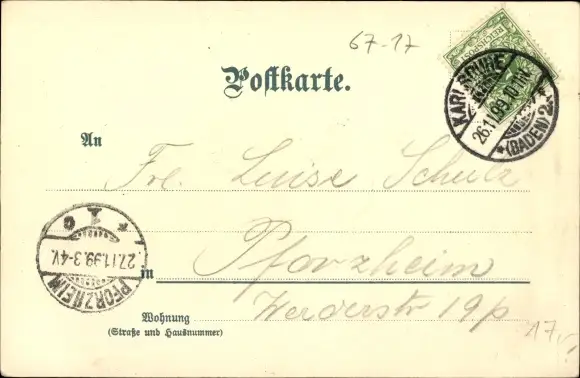 67-17
REICHSPOST
KARLSRUHE
26.11.99.10-11N.
*(BADEN) 2*
Postkarte.
An
Frl. Luise Schulz
PFORZHEIM
27.11.99.3-4V.
* 1 c
in Pforzheim
Werderstr 19p
Wohnung
(Straße und Hausnummer)
17.